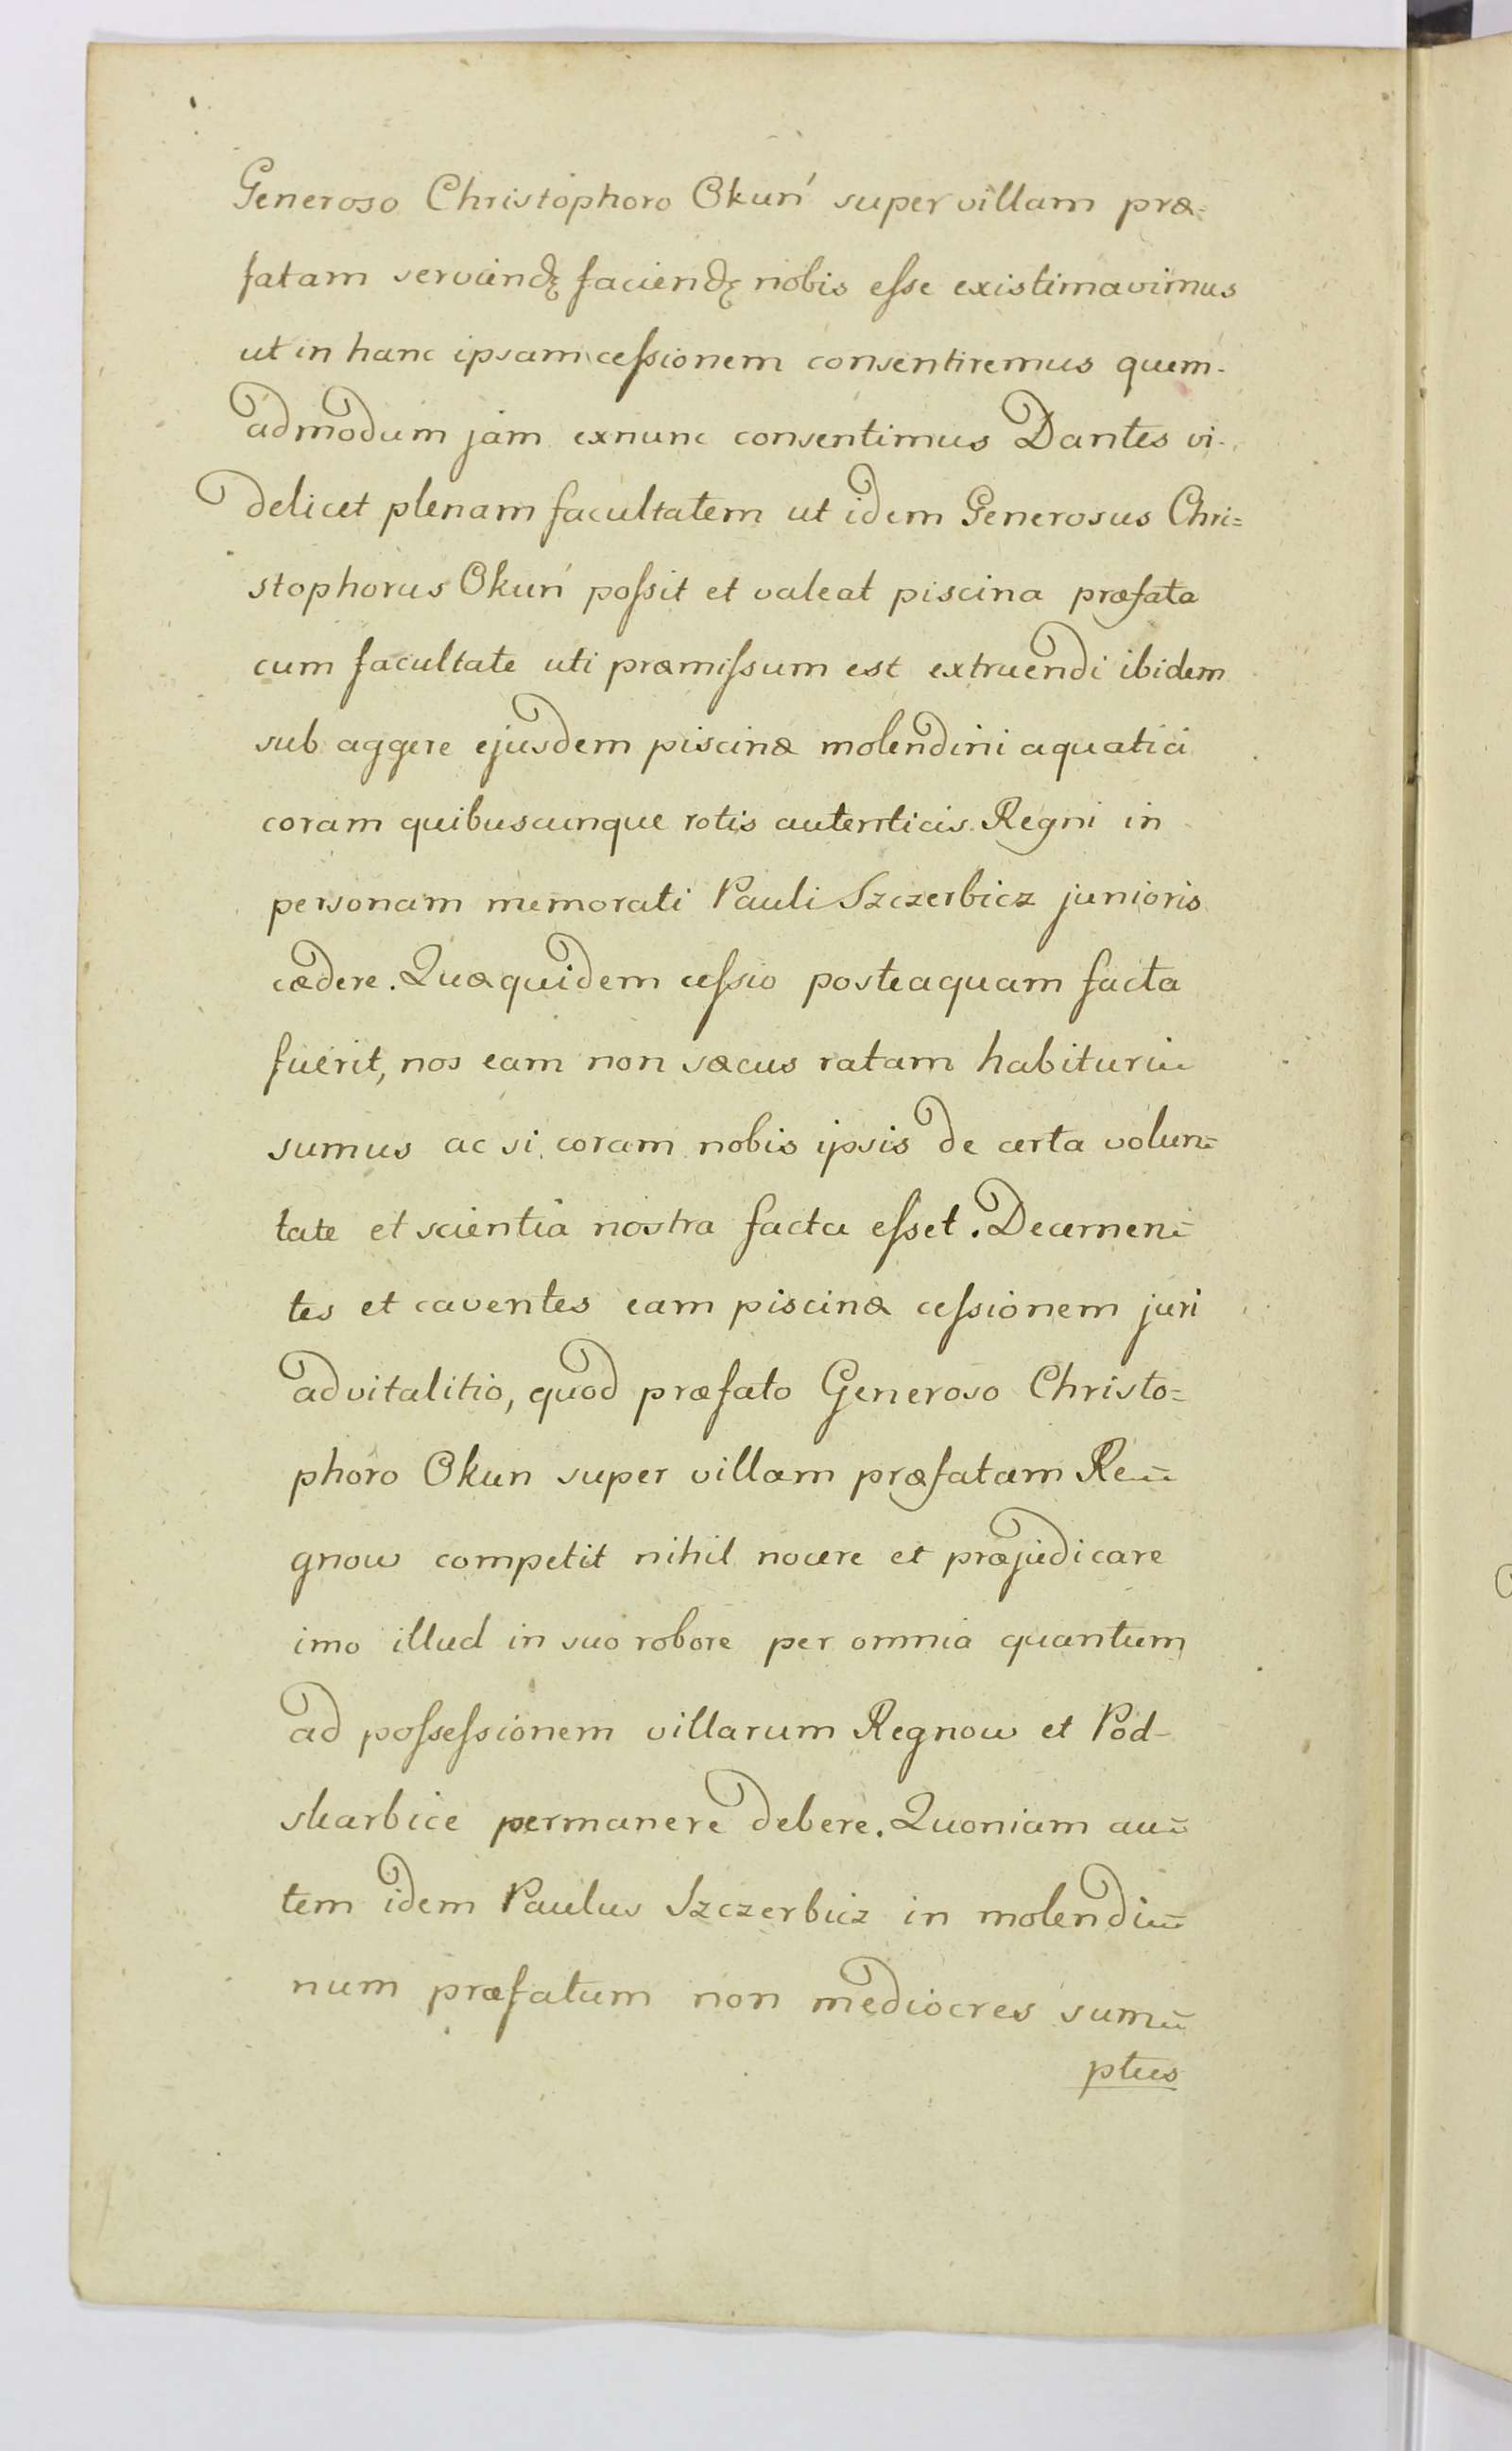 Generoso Christophoro Okuń super villam præ=
fatam serviendę faciendę nobis esse existimavimus
ut in hanc ipsam cessionem consentiremus quem-
admodum jam exnunc consentimus Dantes vi-
delicet plenam facultatem ut idem Generosus Chri=
stophorus Okuń possit et valeat piscina præfata
cum facultate uti præmissum est extruendi ibidem
sub aggere ejusdem piscinæ molendini aquatici
coram quibuscunque rotis autenticis Regni in
personam memorati Pauli Szczerbicz junioris
cædere. Quæquidem cessio posteaquam facta
fuerit, nos eam non sæcus ratam habituri
sumus ac si coram nobis ipsis de certa volun=
tate et scientia nostra facta esset. Decernen=
tes et caventes eam piscinæ cessionem juri
advitalitio, quod præfato Generoso Christo=
phoro Okun super villam præfatam Re=
gnow competit nihil nocere et præjudicare
imo illud in suo robore per omnia quantum
ad possessionem villarum Regnow et Pod-
skarbice permanere debere. Quoniam au=
tem idem Paulus Szczerbicz in molendi=
num præfatum non mediocres sum=
ptus